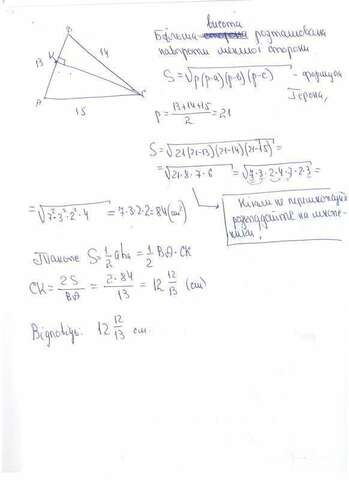 висота
Більша сторона розташована
навпроти меншої сторони
B
14
K
13
A
15
C
S = √p(p-a)(p-b)(p-c) - формула
Герона,
p = 13+14+15 / 2 = 21
S = √21(21-13)(21-14)(21-15) =
= √21·8·7·6 = √7·3·2·4·7·2·3 =
= √7²·3²·2²·4 = 7·3·2·2 = 84 (см²)
Ніколи не перемножуй
розкладайте на множ-
ники!
Також S = 1/2 ah_a = 1/2 BA · CK
CK = 2S / BA = 2·84 / 13 = 12 12/13 (см)
Відповідь: 12 12/13 см.